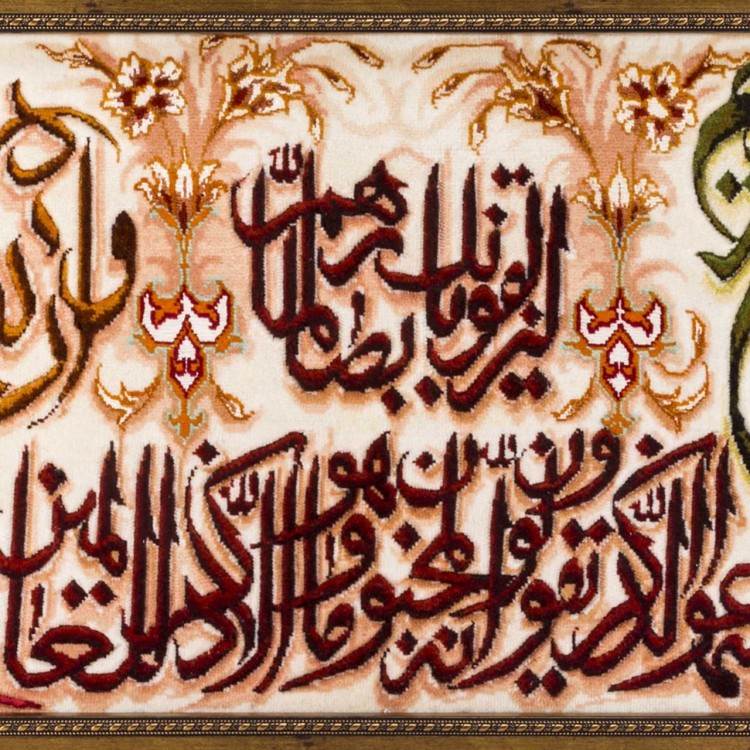 ليزلقونك بابصارهم لما
سمعوا الذكر ويقولون انه لمجنون وما هو الا ذكر للعالمين